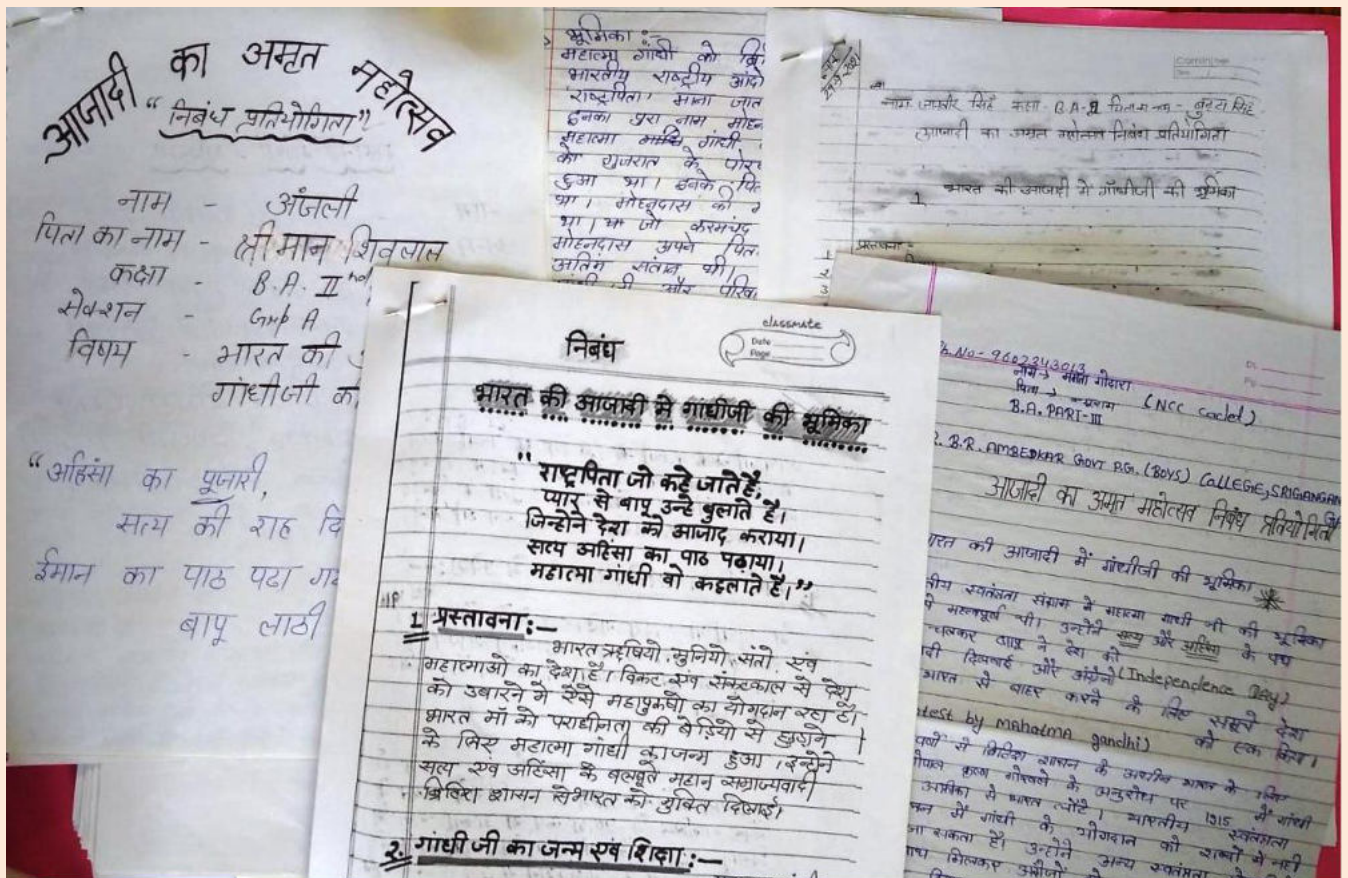 आजादी का अमृत महोत्सव
"निबंध प्रतियोगिता"
नाम - अंजली
पिता का नाम - श्री मान शिवलाल
कक्षा - B.A. II nd
सेक्शन - Grp A
विषय - भारत की
गांधीजी की
"अहिंसा का पूजारी,
सत्य की राह दि
ईमान का पाठ पढा ग
बापू लाठी
भूमिका :-
महात्मा गांधी को ब्रि
भारतीय राष्ट्रीय आंदो
'राष्ट्रपिता' माना जात
इनका पुरा नाम मोहन
महात्मा गांधी
को गुजरात के पोर
हुआ था। इनके पित
था। मोहनदास की
था। या जो करमचंद
मोहनदास अपने पित
अंतिम संतान थी।
और परिव
नाम कक्षा - B.A-II
आजादी का अमृत महोत्सव निबंध प्रतियोगिता
1. भारत की आजादी में गाँधीजी की भूमिका
प्रस्तावना :-
classmate
Date
Page
निबंध
भारत की आजादी मे गाधीजी की भूमिका
"राष्ट्रपिता जो कहे जाते है,
प्यार से बापू उन्हे बुलाते है।
जिन्होने देश को आजाद कराया।
सत्य अहिंसा का पाठ पढाया।
महात्मा गांधी वो कहलाते है।"
1 प्रस्तावना :-
भारत ऋषियो, मुनियो, संतो एवं
महात्माओ का देश है। विकट एवं संकटकाल से देश
को उबारने मे ऐसे महापुरुषो का योगदान रहा है।
भारत माँ को पराधीनता की बेडियो से छुडाने
के लिए महात्मा गांधी का जन्म हुआ। इन्होने
सत्य एवं अहिंसा के बलबूते महान सम्राज्यवादी
ब्रिटिश शासन से भारत को मुक्ति दिलाई।
2. गांधी जी का जन्म एवं शिक्षा :-
No- 9602343013
नाम → गोदारा (NCC Cadet)
पिता →
B.A. PART-III
B.R. AMBEDKAR GOVT P.G. (BOYS) COLLEGE, SRIGANGAN
आजादी का अमृत महोत्सव निबंध प्रतियोगिता
भारत की आजादी में गांधीजी की भूमिका
स्वतंत्रता संग्राम में महात्मा गांधी जी की भूमिका
महत्वपूर्ण थी। उन्होंने सत्य और अहिंसा के पथ
चलकर बापू ने देश को (Independence Day)
दिलवाई और अंग्रेजो
भारत से बाहर करने के लिए समूचे देश
को एक किया।
test by mahatma gandhi)
वर्षों से ब्रिटिश शासन के अधीन भारत के लिए
गोपाल कृष्ण गोखले के अनुरोध पर 1915 में गांधी
अफ्रीका से भारत लौटे। भारतीय स्वतंत्रता
में गांधी के योगदान को शब्दों में नहीं
जा सकता है। उन्होंने अन्य स्वतंत्रता
साथ मिलकर अंग्रेजों